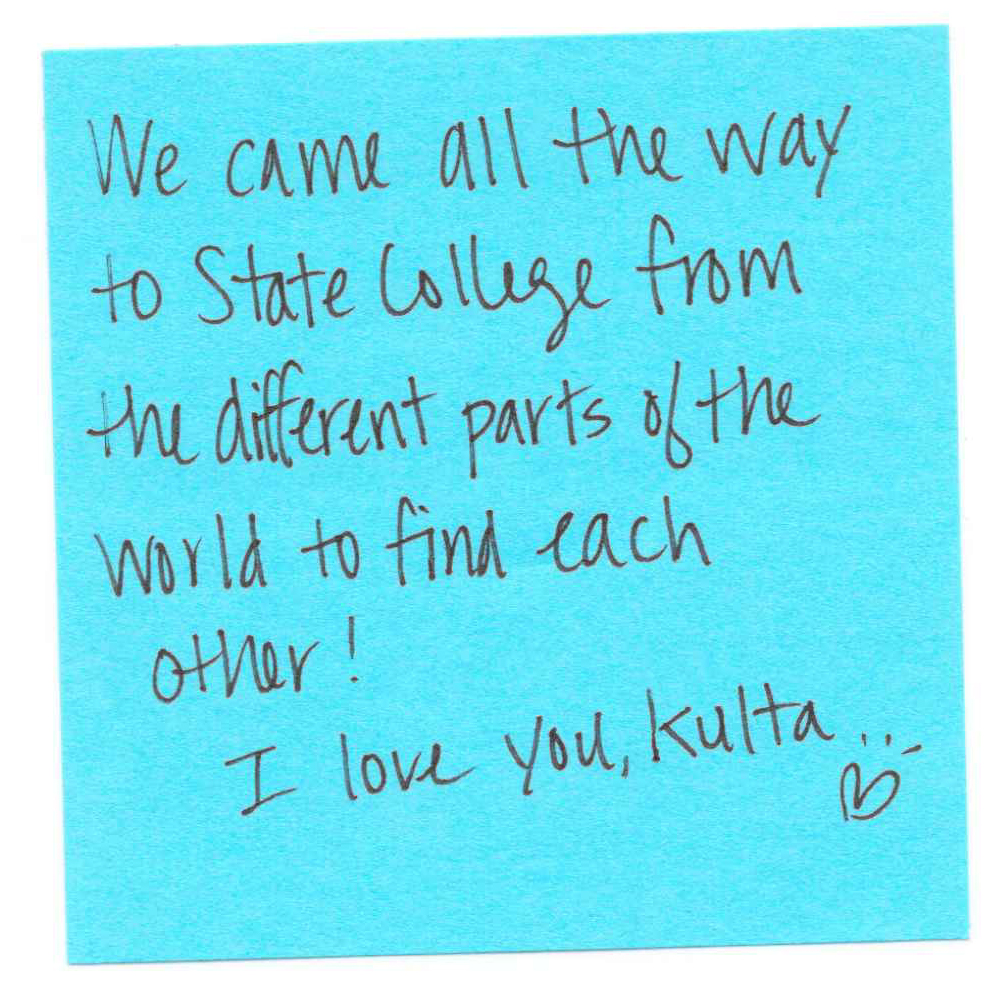 We came all the way
to State College from
the different parts of the
world to find each
other!
I love you, kulta...